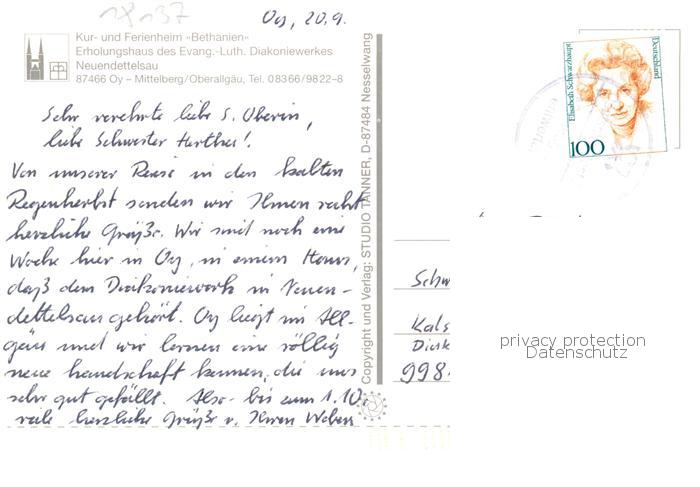 1H137
Oy, 20.9.
Kur- und Ferienheim »Bethanien«
Erholungshaus des Evang.-Luth. Diakoniewerkes
Neuendettelsau
87466 Oy – Mittelberg/Oberallgäu, Tel. 08366/9822–8
Sehr verehrte liebe S. Oberin,
liebe Schwester Herthea!
Von unserer Reise in den kalten
Regenherbst senden wir Ihnen recht
herzliche Grüße. Wir sind noch eine
Woche hier in Oy, in einem Haus,
daß dem Diakoniewerk in Neuen-
dettelsau gehört. Oy liegt im All-
gäu und wir lernen eine völlig
neue Landschaft kennen, die uns
sehr gut gefällt. Also- bis zum 1.10.
viele herzliche Grüße v. Ihren Webers
Copyright und Verlag: STUDIO TANNER, D-87484 Nesselwang
Elisabeth Schwarzhaupt
Deutschland
100
Schw
Kals
Diak
998
privacy protection
Datenschutz